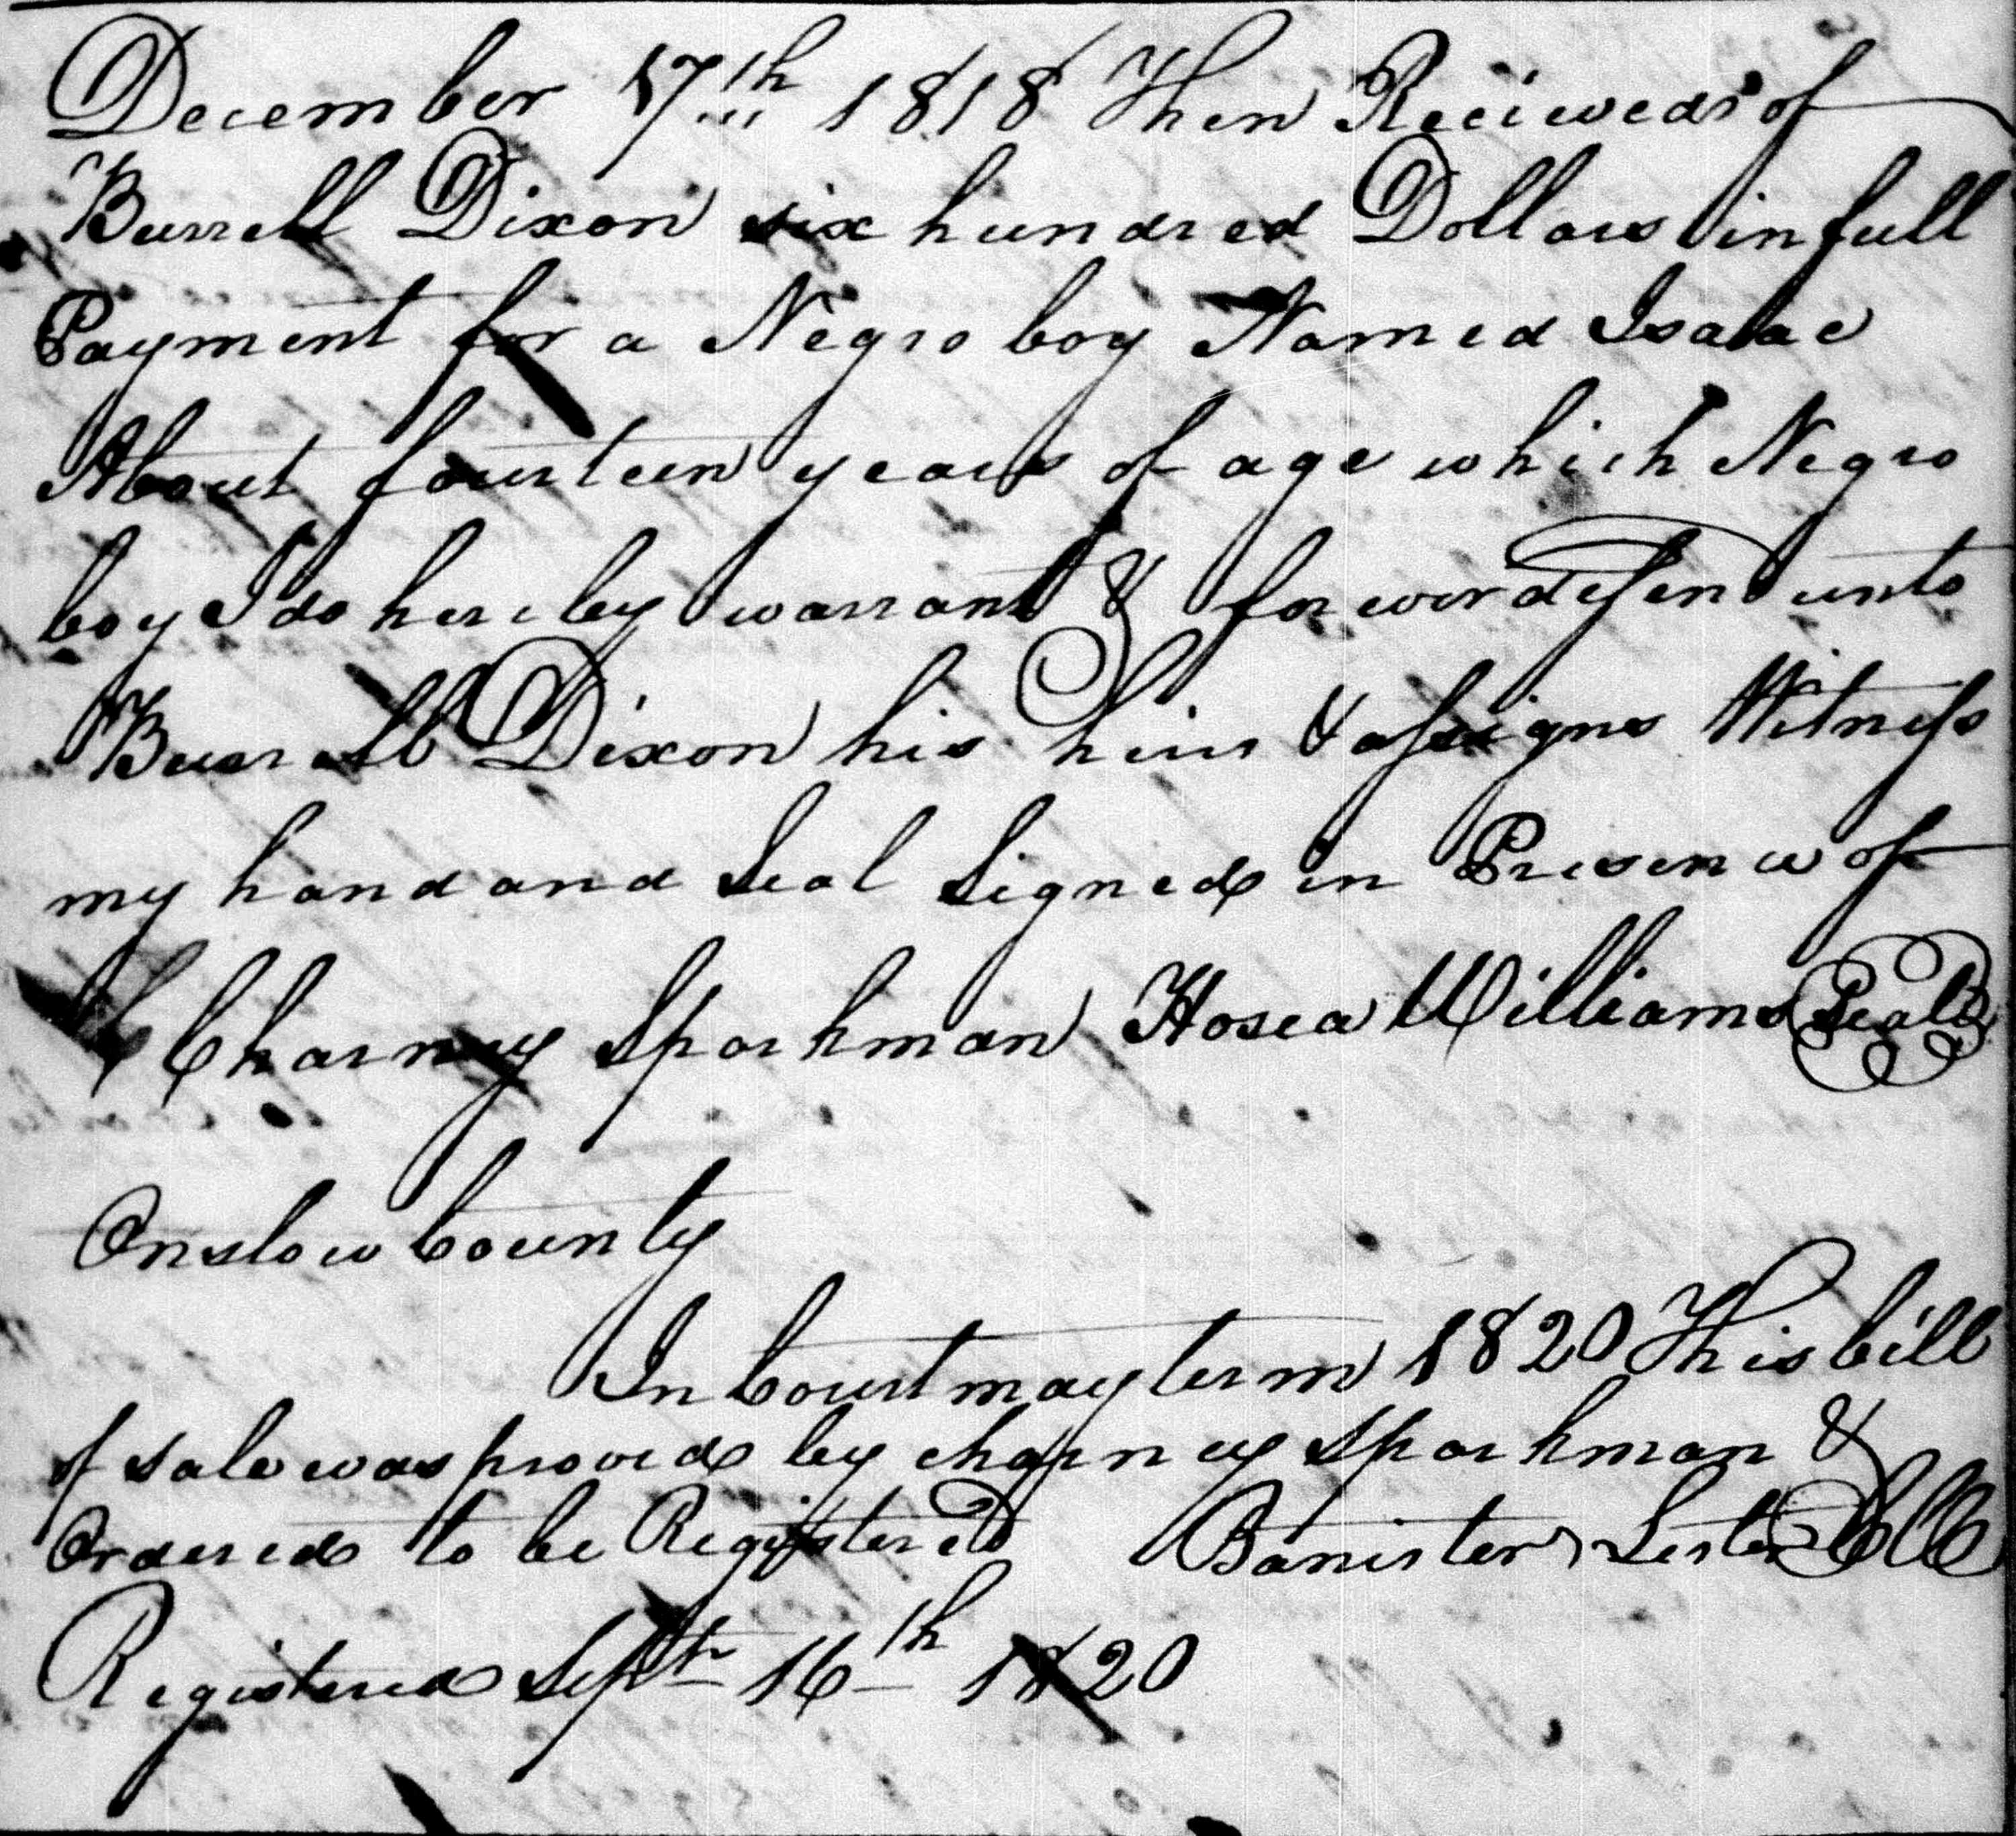 December 17th 1818 Then Reciewed of
Burrell Dixon six hundred Dollars in full
Payment for a Negro boy Named Isaac
About fourteen years of age which Negro
boy I do hereby warrant & forever defend unto
Burrell Dixon his heirs & assigns Witness
my hand and Seal Signed in Presence of
Charney Sparkman Hosea Williams Seal
Onslow County
In Court may term 1820 This bill
of sale was proved by charney Sparkman &
Ordered to be Registered Banister Lester Clk
Registered Sept 16th 1820